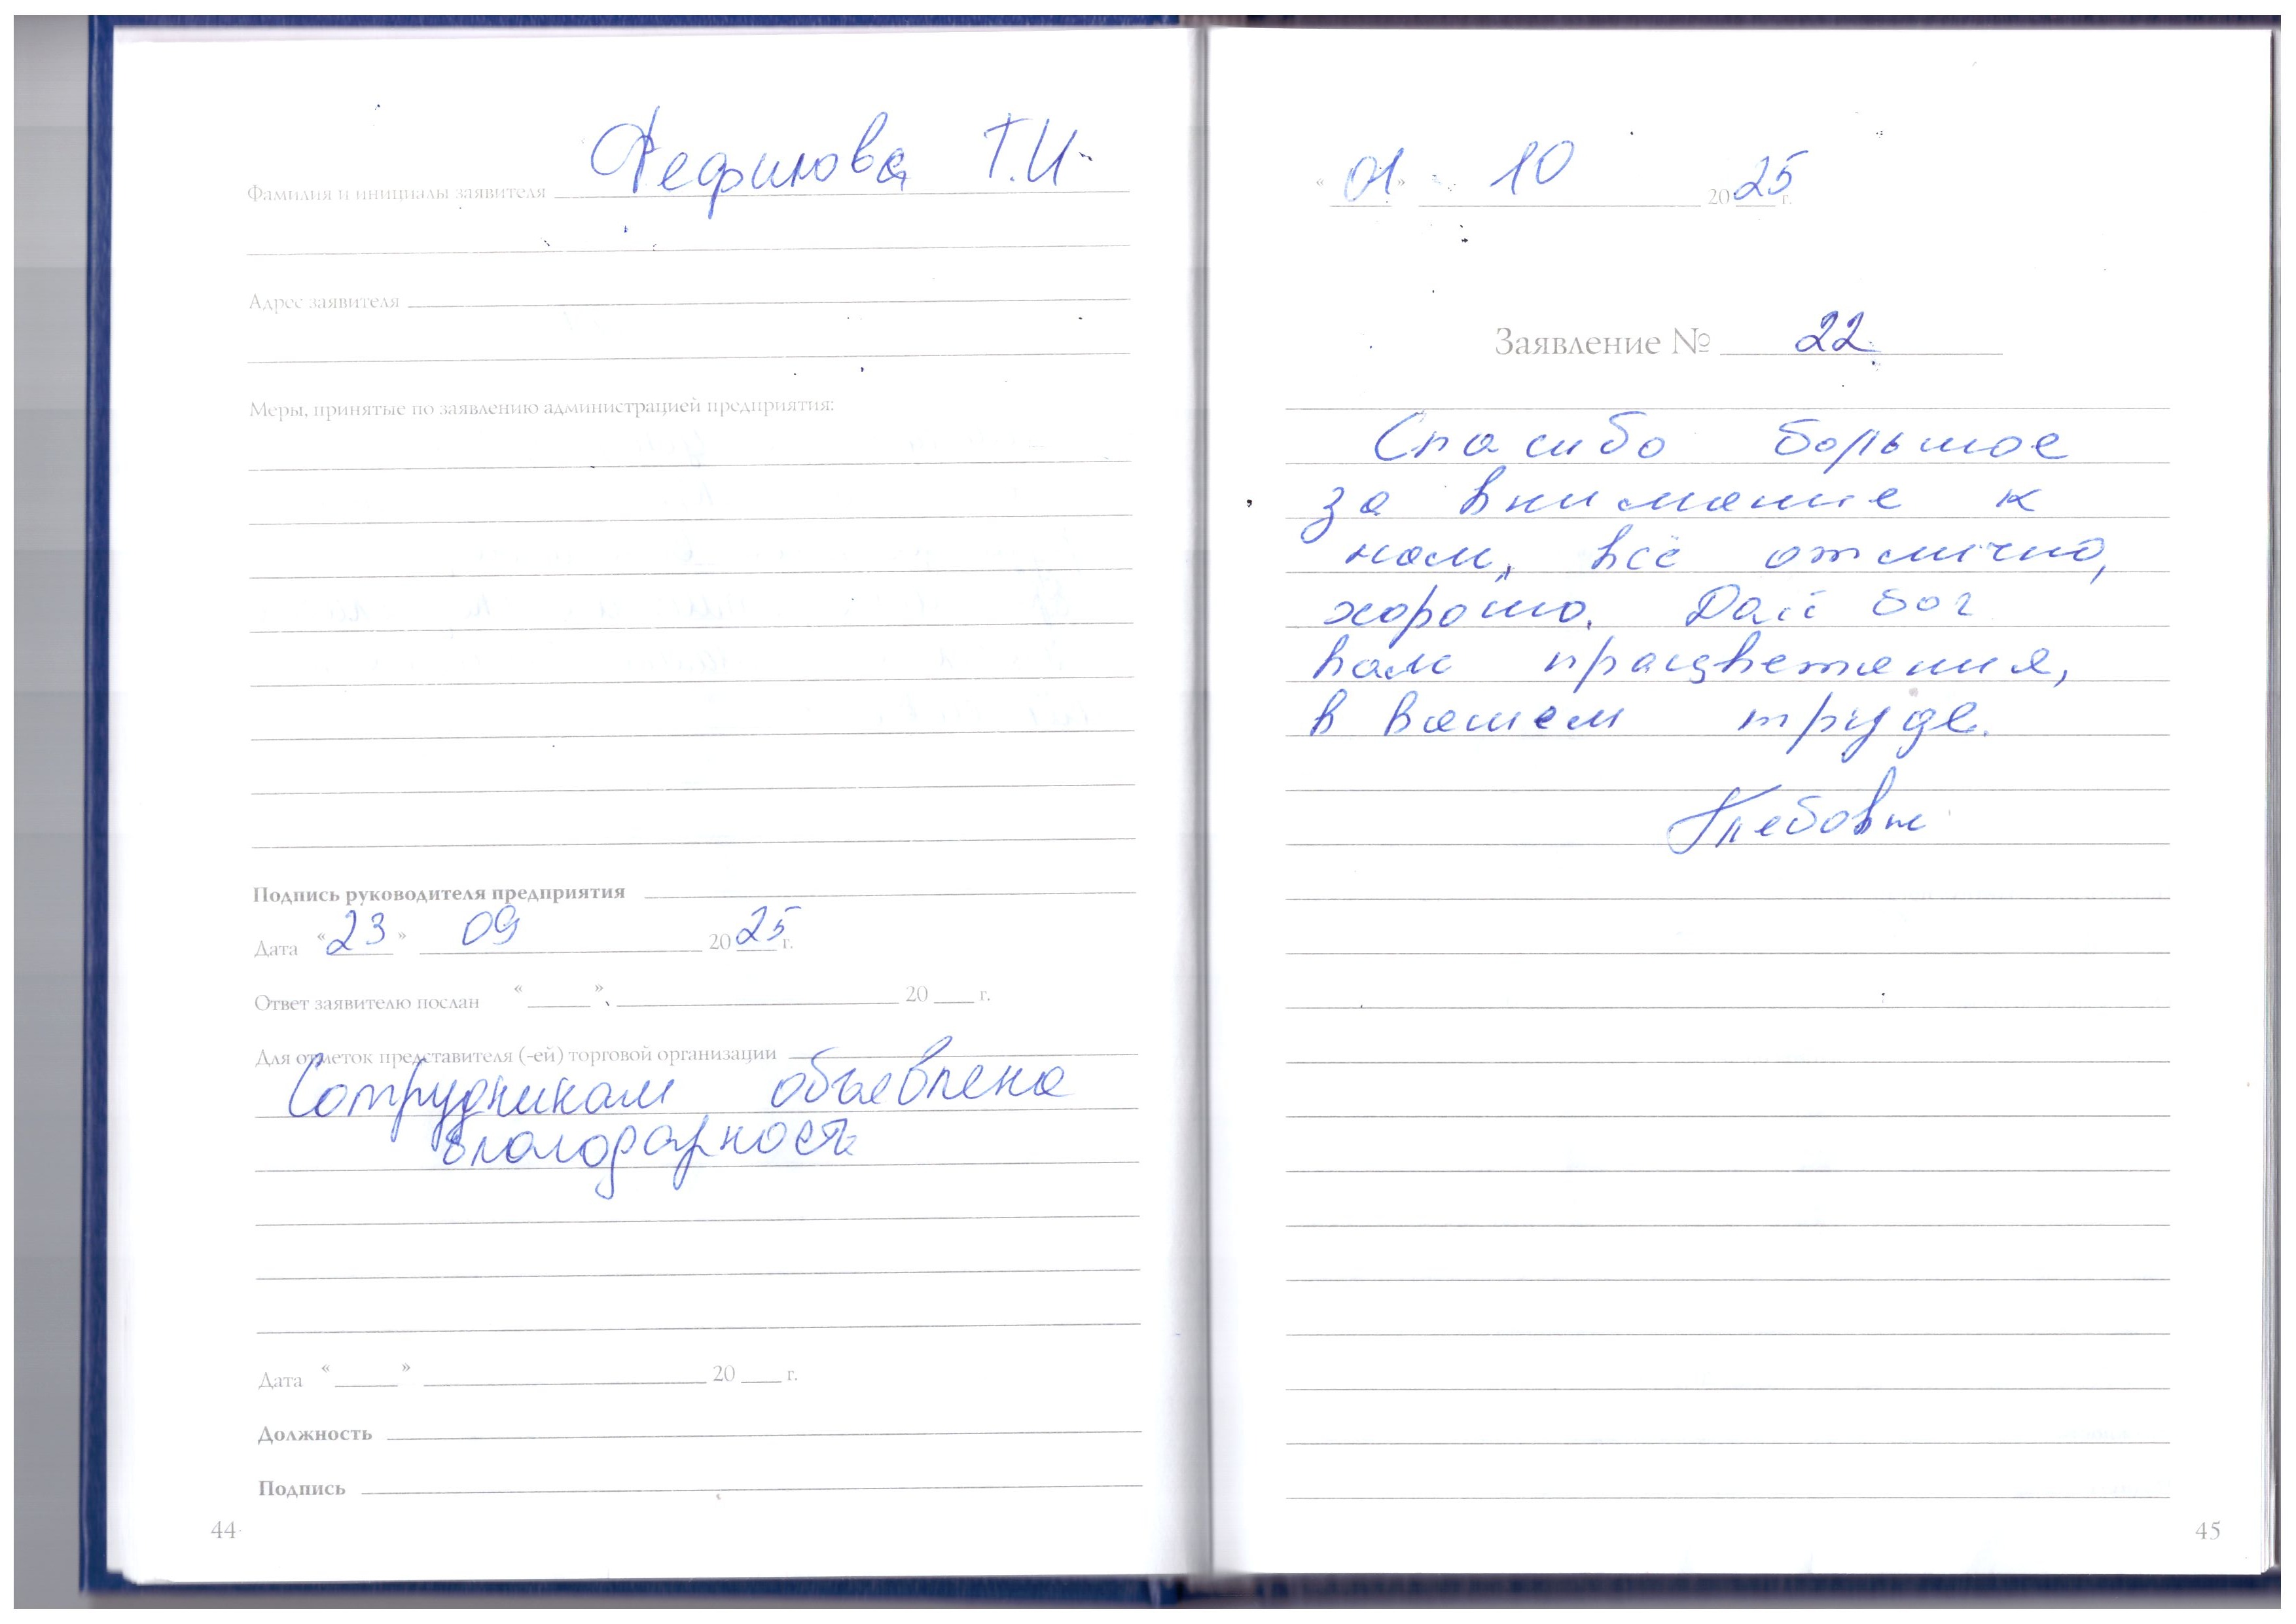 Фамилия и инициалы заявителя Т.И.
Адрес заявителя
Меры, принятые по заявлению администрацией предприятия:
Подпись руководителя предприятия
Дата «23» 09 2025 г.
Ответ заявителю послан « » 20 г.
Для отметок представителя (-ей) торговой организации
Сотрудникам объявлена
благодарность
Дата « » 20 г.
Должность
Подпись
44
«01» 10 2025 г.
Заявление № 22
Спасибо большое
за внимание к
нам, всё отлично,
хорошо. Дай бог
вам працветания,
в вашем труде.
45